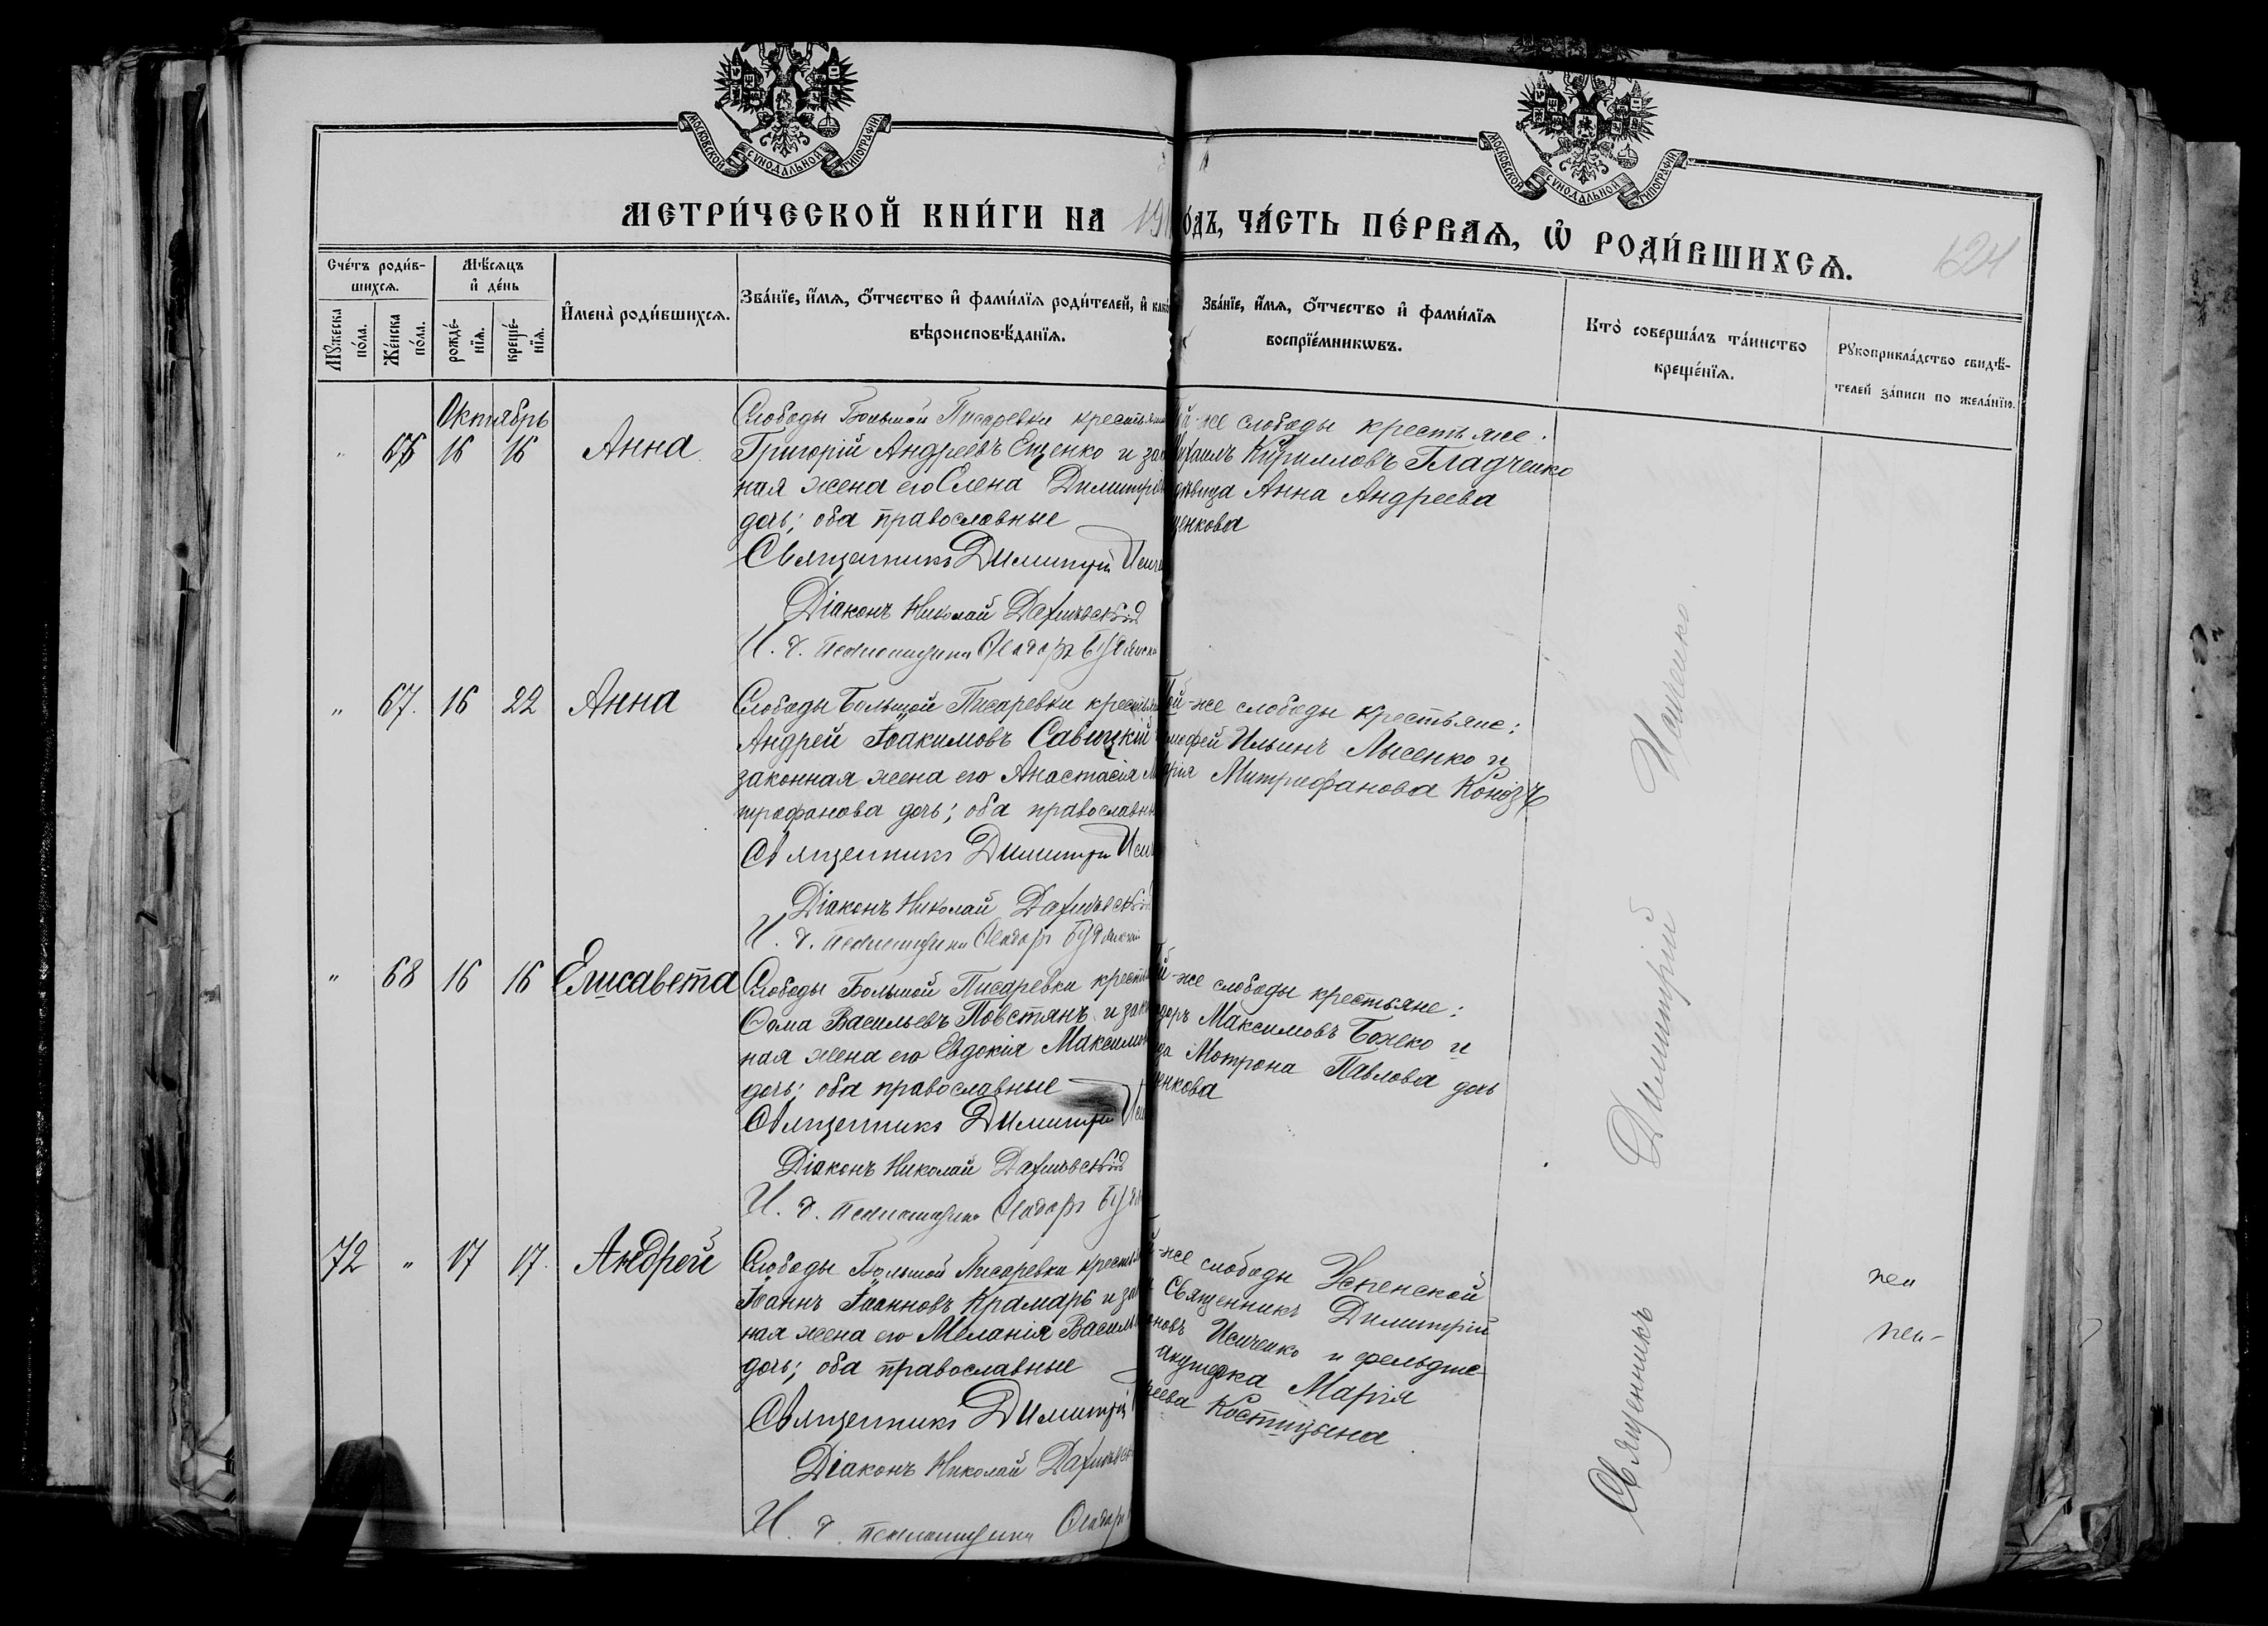 МОСКОВСКОЙ СѴНОДАЛЬНОЙ ТИПОГРАФІИ
МОСКОВСКОЙ СѴНОДАЛЬНОЙ ТИПОГРАФІИ
МЕТРИ́ЧЕСКОЙ КНИ́ГИ НА 191
ОДЪ, ЧА́СТЬ ПЕ́РВАѦ, Ѡ҆ РОДИ́ВШИХСѦ.
Сче́тъ роди́в-
шихсѧ.
Мѣ́сѧцъ
и҆ де́нь
Мꙋ́жеска
по́ла.
Же́нска
по́ла.
рожде́-
нїѧ.
креще́-
нїѧ.
И҆мена̀ роди́вшихсѧ.
Зва́нїе, и҆́мѧ, ѻ҆́тчество и҆ фами́лїѧ роди́телей, и҆ како
вѣроисповѣ́данїѧ.
Зва́нїе, и҆́мѧ, ѻ҆́тчество и҆ фами́лїѧ
воспрїе́мникѡвъ.
Кто̀ соверша́лъ та́инство
креще́нїѧ.
Рꙋкоприкла́дство свидѣ́-
телей за́писи по жела́нїю.
Октябрь
" 16 16 Анна
Слободы Большой Писаревки крестьянин
Григорій Андреевъ Ещенко и зак
ная жена его Елена Димитріе
дочь; оба православные
Священникъ Димитрій Исич
Діаконъ Николай
И. д. псаломщика Ѳеодоръ
й-же слободы крестьяне:
хаилъ Кирилловъ Гладченко
девица Анна Андреева
щенкова
" 67. 16 22 Анна
Слободы Большой Писаревки крестьян
Андрей Іоакимовъ Савицкій
законная жена его Анастасія М
трофанова дочь; оба православны
Священникъ Димитрій Исич
Діаконъ Николай
И. д. псаломщика Ѳеодоръ
ой-же слободы крестьяне:
мофей Ильинъ Лысенко и
арія Митрофанова
" 68 16 16 Елисавета
Слободы Большой Писаревки крестья
Ѳома Васильевъ Повстянъ и зак
ная жена его Евдокія Максимов
дочь; оба православные
Священникъ Димитрій Иси
Діаконъ Николай
И. д. псаломщика Ѳеодоръ
й-же слободы крестьяне:
доръ Максимовъ Божко и
ца Мотрона Павлова дочь
енкова
72 " 17 17. Андрей
Слободы Большой Писаревки крестья
Іоаннъ Іоанновъ Крамарь и зак
ная жена его Меланія Василье
дочь; оба православные
Священникъ Димитрій
Діаконъ Николай
И. д. псаломщика Ѳеодоръ
й-же слободы Успенской
Священникъ Димитрій
новъ Исиченко и фельдше-
акушерка Марія
реева Костицына
Священникъ Димитрій Исиченко.